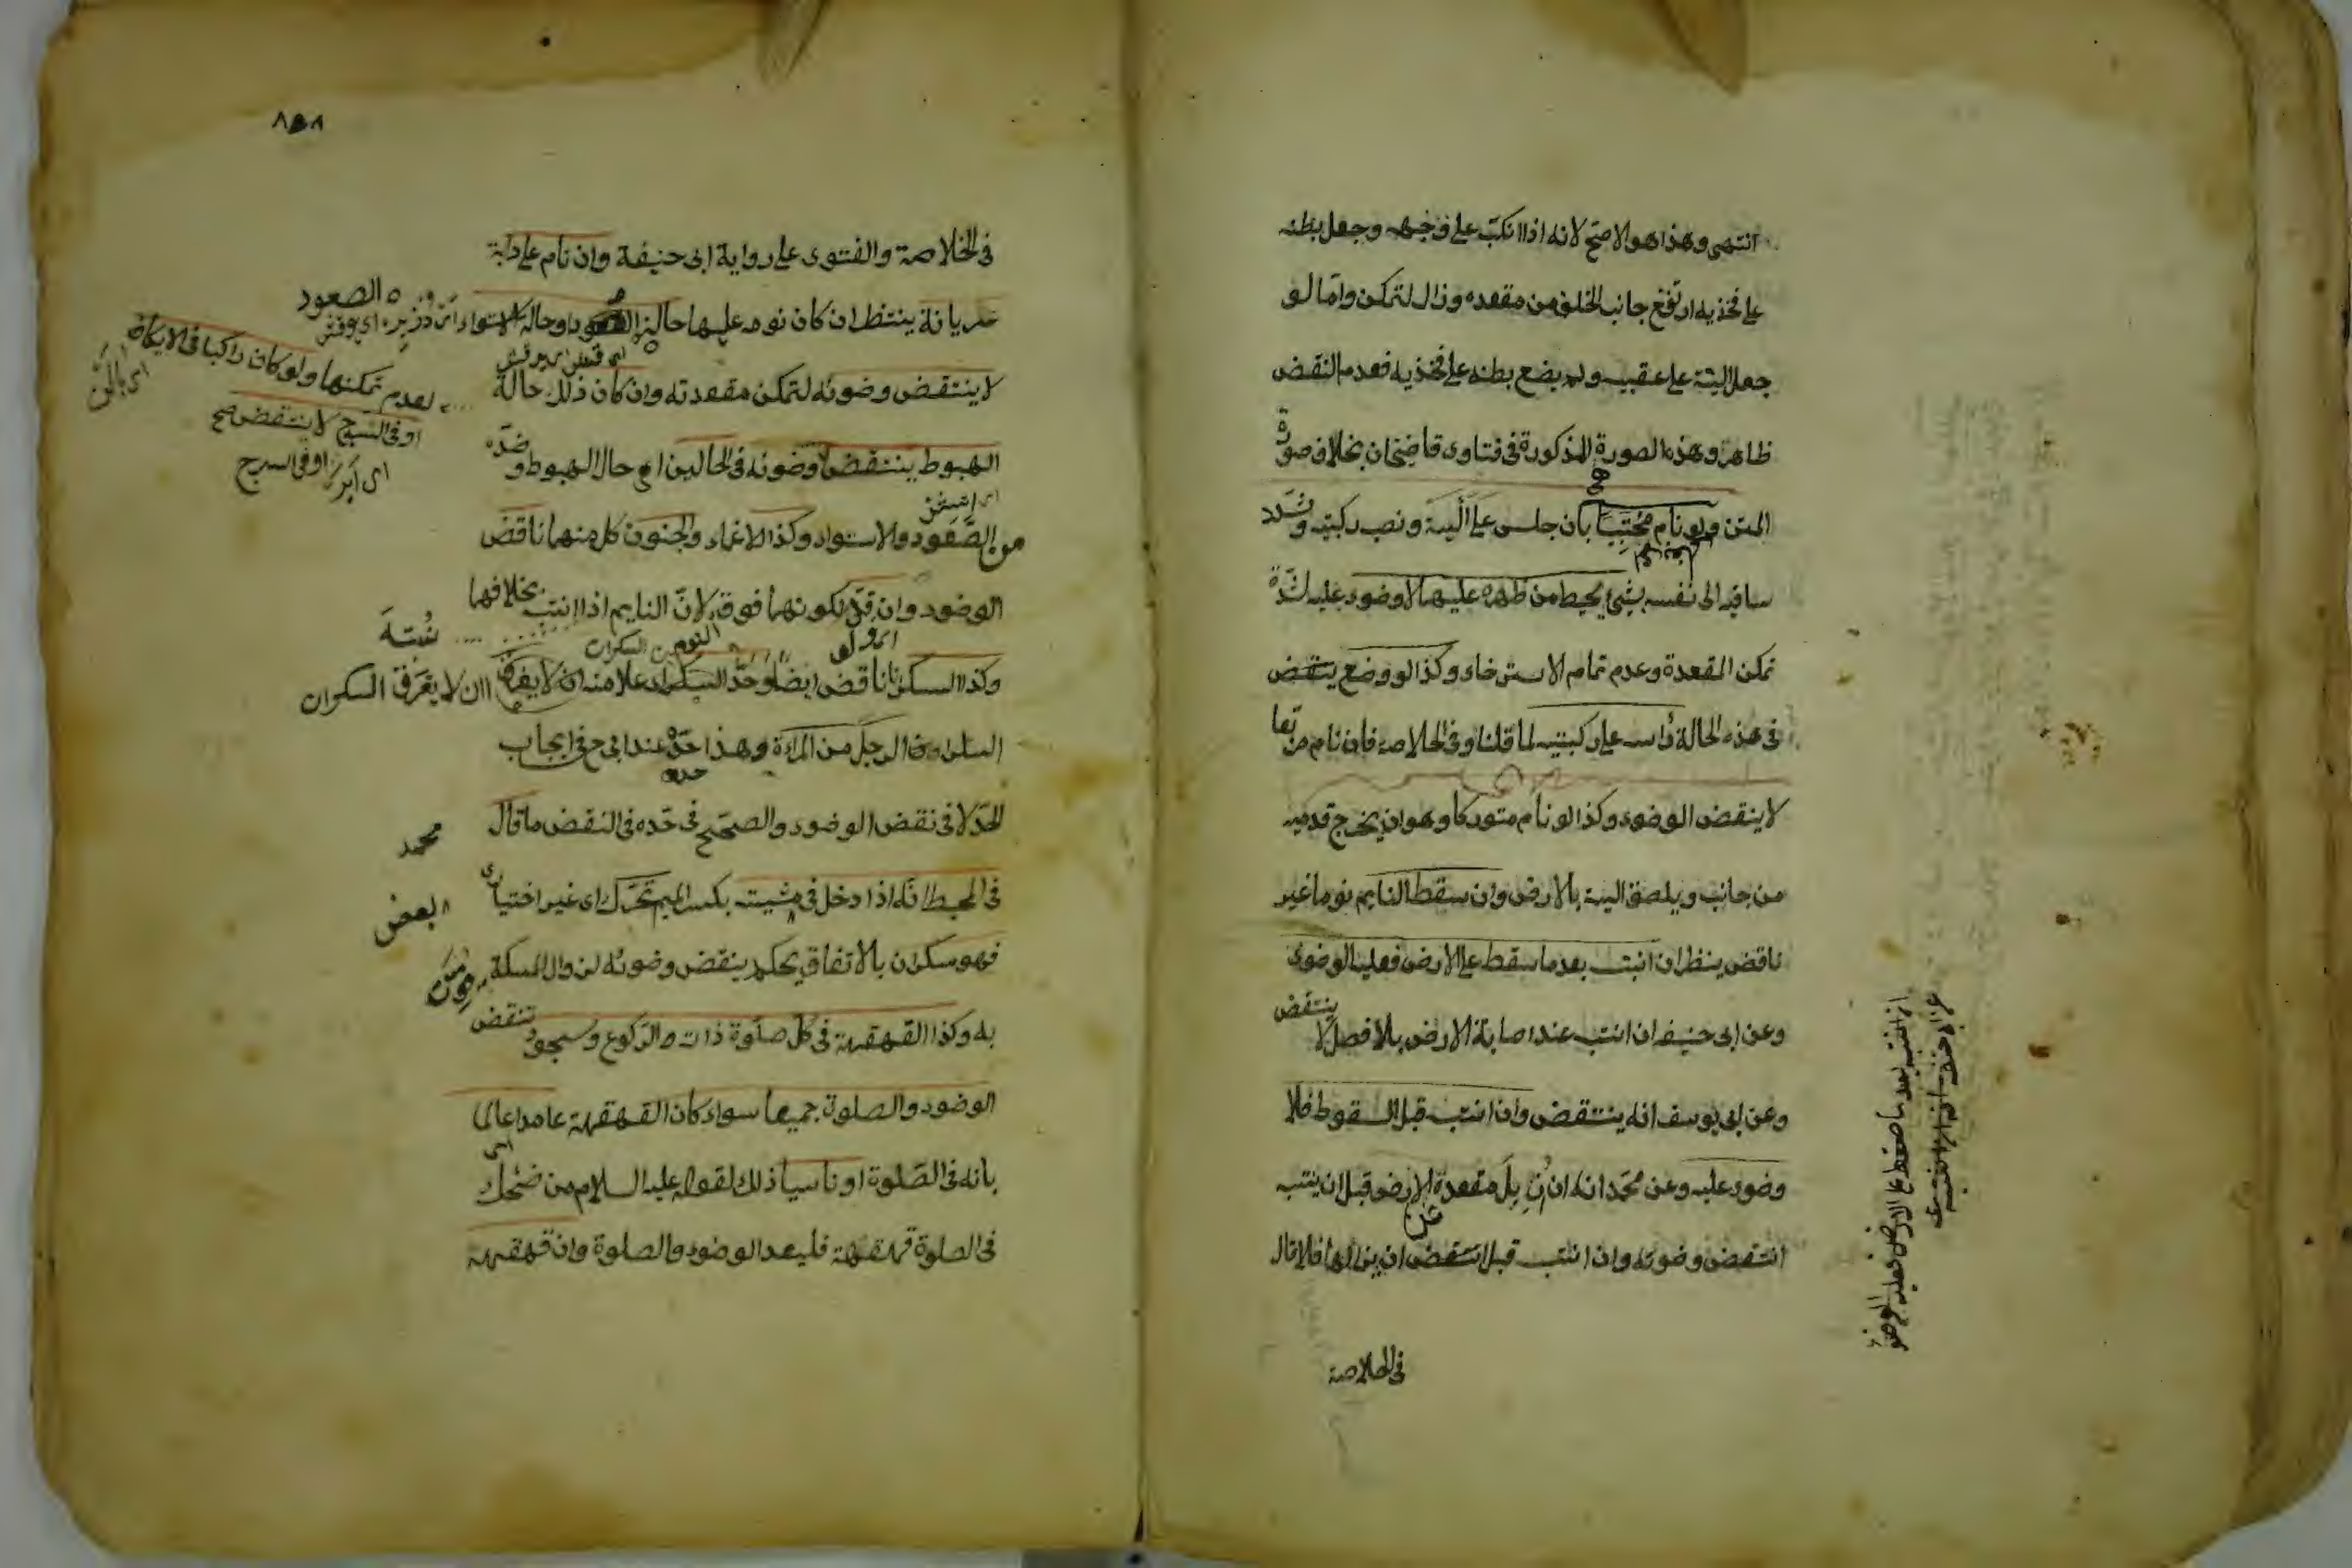 انتهى وهذا هو الاصح لانه اذا انكب على وجهه وجعل بطنه
على فخذيه ارتفع جانب الخلف من مقعده وزال التمكن واما لو
جعل اليته على عقبيه ولم يضع بطنه على فخذيه فعدم النقض
ظاهر وهذه الصورة المذكورة فى فتاوى قاضيخان بخلاف صورة
المتن ولو نام محتبيا بان جلس على اليته ونصب ركبتيه وشدد
ساقيه الى نفسه بشئ يحيط من ظهره عليهما لا وضوء عليه لشدة
تمكن المقعدة وعدم تمام الاسترخاء وكذا لو وضع ينتقض
فى هذه الحالة رأسه على ركبتيه لما قلنا وفى الخلاصة فان نام متربعا
لا ينقض الوضوء وكذا لو نام متوركا وهو ان يخرج قدميه
من جانب ويلصق اليته بالارض وان سقط النايم نوما غير
ناقض ينظر ان انتبه بعد ما سقط على الارض فعليه الوضوء
ينتقض
وعن ابى حنيفة ان انتبه عند اصابة الارض بلا فصل لا
وعن ابى يوسف انه ينتقض وان انتبه قبل السقوط فلا
وضوء عليه وعن محمد انه ان زايل مقعدة الارض قبل ان ينتبه
انتقض وضوئه وان انتبه قبل انتقض ان يزايلها فلا قال
فى الخلاصة
ان انتبه بعد ما سقط على الارض فعليه الوضوء
٨٥٨
فى الخلاصة والفتوى على رواية ابى حنيفة وان نام على دابة
الصعود
عريانة ينتظر ان كان نومه عليها حالة الصعود او حالة الاستواء
لا ينتقض وضوئه لتمكن مقعدته وان كان ذلك حالة
لعدم تمكنها ولو كان راكبا فى الاكاف
او فى السرج لا ينتقض صح
اى او فى السرج
الهبوط ينتقض وضوئه فى الحالين اى حال الهبوط وضده
من الصعود والاستواء وكذا الاغماء والجنون كل منهما ناقض
الوضوء وان قل لكونهما فوقه لان النايم اذا انتبه بخلافها
وكذا السكر ناقض ايضا وحد السكران علامته ان لا يفرق
ان لا يعرف السكران
السكران قال الرجل من المراة وهذا حده عند ابى ح فى ايجاب
الحد لا فى نقض الوضوء والصحيح فى حده فى النقض ما قال
محمد
فى المحيط انه اذا دخل فى مشيته بكسر الميم تحرك اى غير اختيارى
بعض
فهو سكران بالاتفاق يحكم بنقض وضوئه لزوال المسكة
به وكذا القهقهة فى كل صلوة ذات والركوع وسجود تنقض
الوضوء والصلوة جميعا سواء كان القهقهة عامدا عالما
بانه فى الصلوة او ناسيا ذلك لقوله عليه السلام من ضحك
فى الصلوة قهقهة فليعد الوضوء والصلوة وان قهقهة